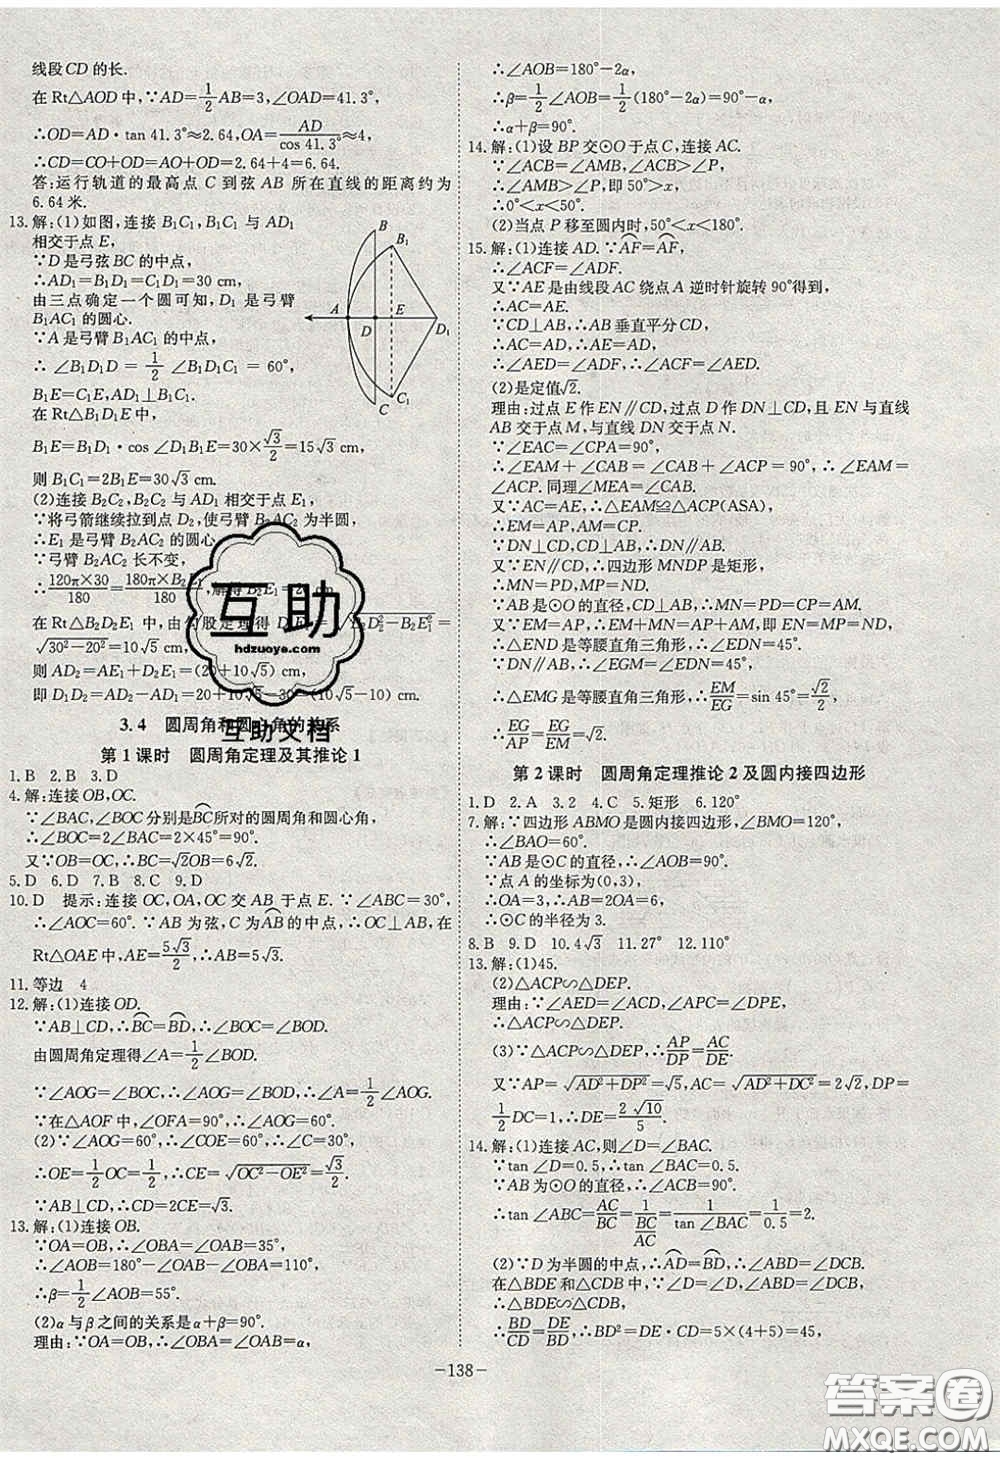 线段CD的长.
在Rt△AOD中,∵AD=1/2AB=3,∠OAD=41.3°,
∴OD=AD·tan 41.3°≈2.64,OA=AD/cos 41.3°≈4,
∴CD=CO+OD=AO+OD=2.64+4=6.64.
答:运行轨道的最高点C到弦AB所在直线的距离约为
6.64米.
13.解:(1)如图,连接B₁C₁,B₁C₁与AD₁
相交于点E,
∵D是弓弦BC的中点,
∴AD₁=B₁D₁=C₁D₁=30 cm,
由三点确定一个圆可知,D₁是弓臂
B₁AC₁的圆心.
∵A是弓臂B₁AC₁的中点,
∴∠B₁D₁D=1/2∠B₁D₁C₁=60°,
B₁E=C₁E,AD₁⊥B₁C₁.
在Rt△B₁D₁E中,
B₁E=B₁D₁·cos∠D₁B₁E=30×√3/2=15√3 cm,
则B₁C₁=2B₁E=30√3 cm.
B
B₁
A
D
E
D₁
C₁
C
(2)连接B₂C₂,B₂C₂与AD₁相交于点E₁,
∵将弓箭继续拉到点D₂,使弓臂B₂AC₂为半圆,
∴E₁是弓臂B₂AC₂的圆心.
∵弓臂B₂AC₂长不变,
∴120π×30/180=180π×B₂E₁/180,解得B₂E₁=20 cm.
在Rt△B₂D₂E₁中,由勾股定理得D₂E₁=√B₂D₂²-B₂E₁²=
√30²-20²=10√5 cm,
则AD₂=AE₁+D₂E₁=(20+10√5)cm,
即D₁D₂=AD₂-AD₁=20+10√5-30=(10√5-10) cm.
3.4 圆周角和圆心角的关系
第1课时 圆周角定理及其推论1
1.B 2.B 3.D
4.解:连接OB,OC.
∵∠BAC,∠BOC分别是BC⌒所对的圆周角和圆心角,
∴∠BOC=2∠BAC=2×45°=90°.
又∵OB=OC,∴BC=√2OB=6√2.
5.D 6.D 7.B 8.C 9.D
10.D 提示:连接OC,OA,OC交AB于点E.∵∠ABC=30°,
∴∠AOC=60°.∵AB为弦,C为AB⌒的中点,∴OC⊥AB,在
Rt△OAE中,AE=5√3/2,∴AB=5√3.
11.等边 4
12.解:(1)连接OD.
∵AB⊥CD,∴BC⌒=BD⌒,∴∠BOC=∠BOD.
由圆周角定理得∠A=1/2∠BOD.
∵∠AOG=∠BOC,∴∠AOG=∠BOD,∴∠A=1/2∠AOG.
∵在△AOF中,∠OFA=90°,∴∠AOG=60°.
(2)∵∠AOG=60°,∴∠COE=60°,∴∠C=30°,
∴OE=1/2OC=1/2,∴CE=√OC²-OE²=√3/2.
∵AB⊥CD,∴CD=2CE=√3.
13.解:(1)连接OB.
∵OA=OB,∴∠OBA=∠OAB=35°,
∴∠AOB=180°-∠OAB-∠OBA=110°,
∴β=1/2∠AOB=55°.
(2)α与β之间的关系是α+β=90°.
理由:∵OA=OB,∴∠OBA=∠OAB=α,
∴∠AOB=180°-2α,
∴β=1/2∠AOB=1/2(180°-2α)=90°-α,
∴α+β=90°.
14.解:(1)设BP交⊙O于点C,连接AC.
∵∠ACB=∠AMB,∠ACB>∠P,
∴∠AMB>∠P,即50°>x°,
∴0°<x<50°.
(2)当点P移至圆内时,50°<x<180°.
15.解:(1)连接AD.∵AF⌒=AF⌒,
∴∠ACF=∠ADF.
又∵AE是由线段AC绕点A逆时针旋转90°得到,
∴AC=AE.
∵CD⊥AB,∴AB垂直平分CD,
∴AC=AD,∴AE=AD,
∴∠AED=∠ADF,∴∠ACF=∠AED.
(2)是定值√2.
理由:过点E作EN∥CD,过点D作DN⊥CD,且EN与直线
AB交于点M,与直线DN交于点N.
∵∠EAC=∠CPA=90°,
∴∠EAM+∠CAB=∠CAB+∠ACP=90°,∴∠EAM=
∠ACP.同理∠MEA=∠CAP.
又∵AC=AE,∴△EAM≌△ACP(ASA),
∴EM=AP,AM=CP.
∵DN⊥CD,CD⊥AB,∴DN∥AB.
又∵EN∥CD,∴四边形MNDP是矩形,
∴MN=PD,MP=DN.
∵AB是⊙O的直径,CD⊥AB,∴MN=PD=CP=AM.
又∵EM=AP,∴EM+MN=AP+AM=MP,即EN=DN,
∴△END是等腰直角三角形,
∴∠NDE=45°,∴∠EGM=∠EDN=45°,
∴△EMG是等腰直角三角形,∴EM/EG=sin 45°=√2/2,
∴EG/AP=EG/EM=√2.
第2课时 圆周角定理推论2及圆内接四边形
1.D 2.A 3.2 4.C 5.矩形 6.120°
7.解:∵四边形ABMO是圆内接四边形,∠BMO=120°,
∴∠BAO=60°.
∵AB是⊙C的直径,∴∠AOB=90°.
∵点A的坐标为(0,3),
∴OA=3,∴AB=2OA=6,
∴⊙C的半径为3.
8.B 9.D 10.4√3 11.27° 12.110°
13.解:(1)45.
(2)△ACP∽△DEP.
理由:∵∠AED=∠ACD,∠APC=∠DPE,
∴△ACP∽△DEP.
(3)∵△ACP∽△DEP,∴AP/DP=AC/DE.
又∵AP=√AD²+DP²=√5,AC=√AD²+DC²=2√2,DP=
1/2DC=1,∴DE=2√10/5.
14.解:(1)连接AC,则∠D=∠BAC.
∵tan∠D=0.5,∴tan∠BAC=0.5.
∵AB为⊙O的直径,∴∠ACB=90°.
∴tan∠ABC=AC/BC=1/(BC/AC)=1/tan∠BAC=1/0.5=2.
(2)∵D为半圆的中点,∴AD⌒=BD⌒,∴∠ABD=∠DCB.
在△BDE和△CDB中,∵∠BDE=∠CDB,∠ABD=∠DCB,
∴△BDE∽△CDB,
∴BD/CD=DE/BD,∴BD²=DE·CD=5×(4+5)=45,
-138-
互助
hdzuoye.com
互助文档
答案圈
MXQE.COM